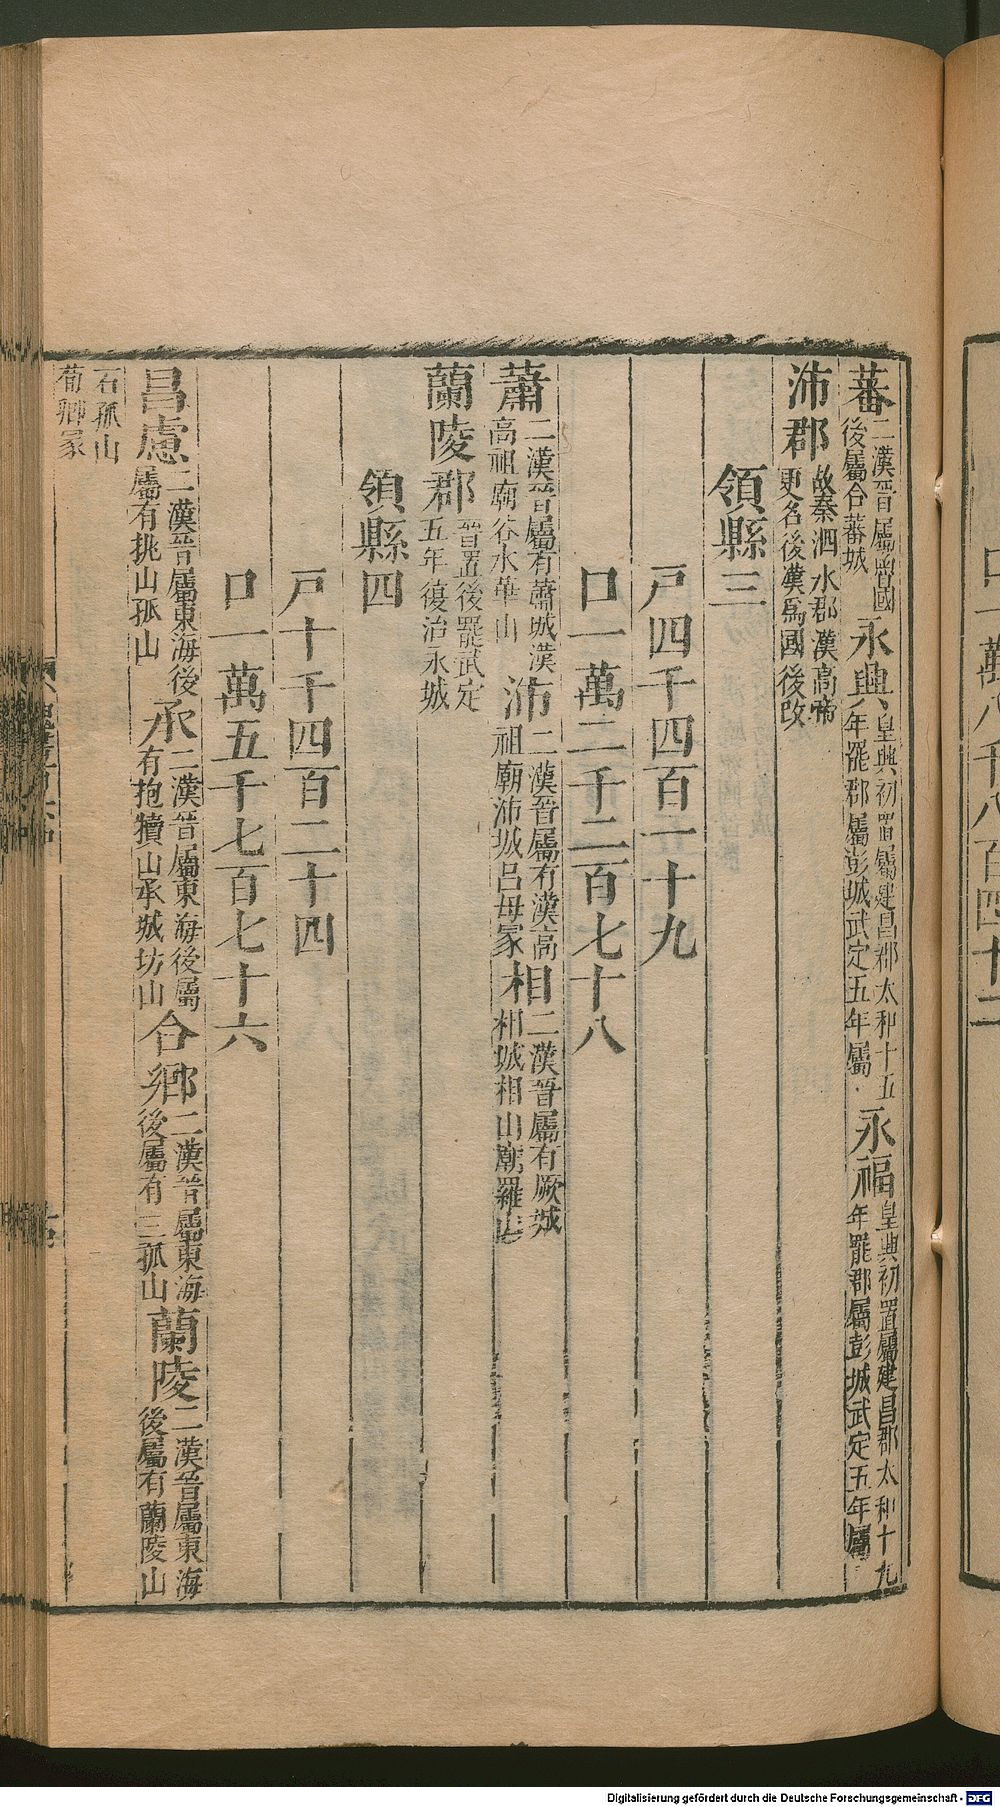 蕃二漢晉屬魯國後屬合蕃城 永興皇興初置屬建昌郡太和十五年罷郡屬彭城武定五年屬 永福皇興初置屬建昌郡太和十九年罷郡屬彭城武定五年屬
沛郡故秦泗水郡漢高帝更名後漢爲國後改
領縣三
戸四千四百一十九
口一萬二千二百七十八
蕭二漢晉屬有蕭城漢高祖廟谷水華山 沛二漢晉屬有漢高祖廟沛城呂母冢 相二漢晉屬有厥城相城相山廟羅山
蘭陵郡晉置後罷武定五年復治永城
領縣四
戸十千四百二十四
口一萬五千七百七十六
昌慮二漢晉屬東海後屬有挑山孤山 承二漢晉屬東海後屬有抱犢山承城坊山 合鄉二漢晉屬東海後屬有三孤山 蘭陵二漢晉屬東海後屬有蘭陵山
石孤山荀卿冢
Digitalisierung gefördert durch die Deutsche Forschungsgemeinschaft - DFG